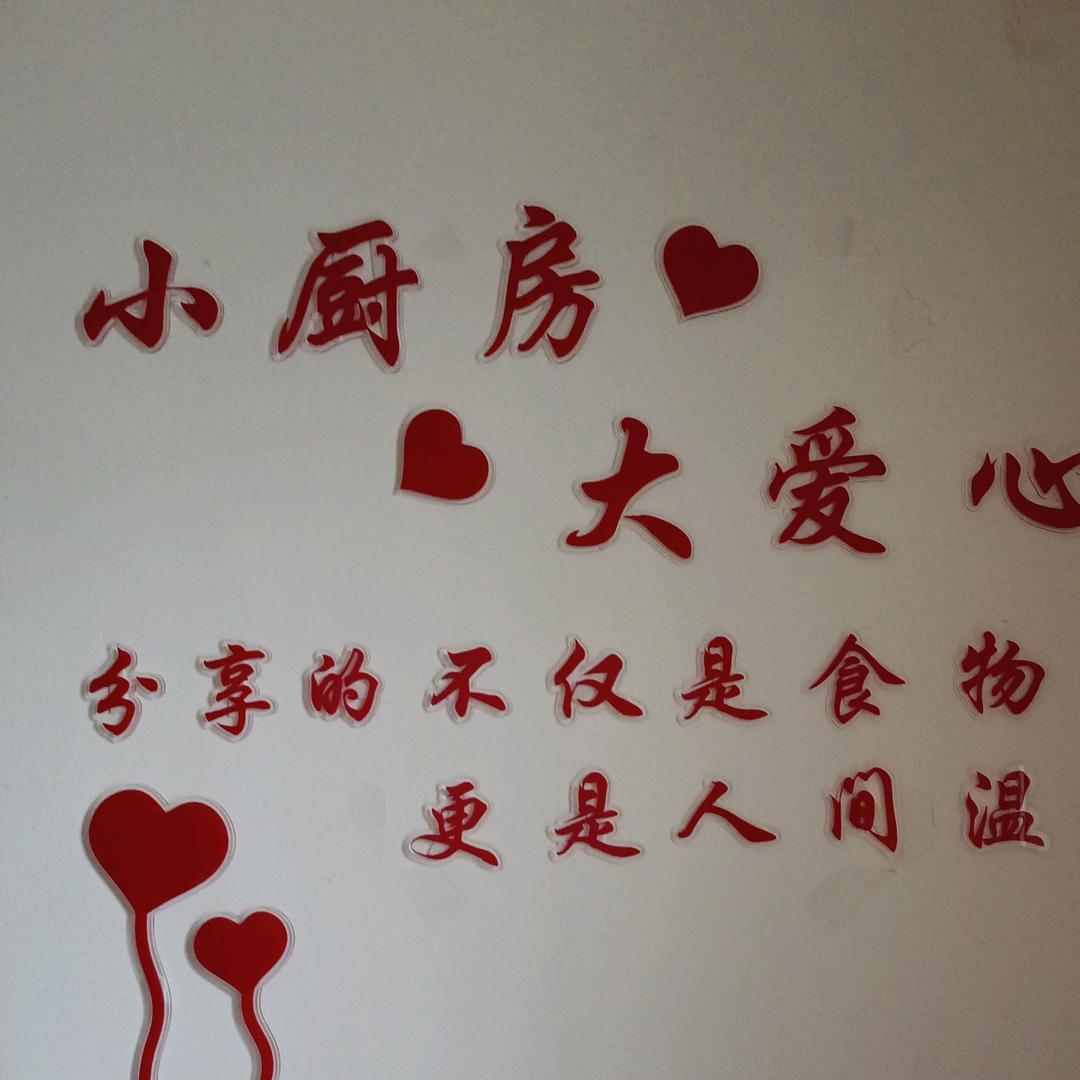 小厨房
大爱心
分享的不仅是食物
更是人间温